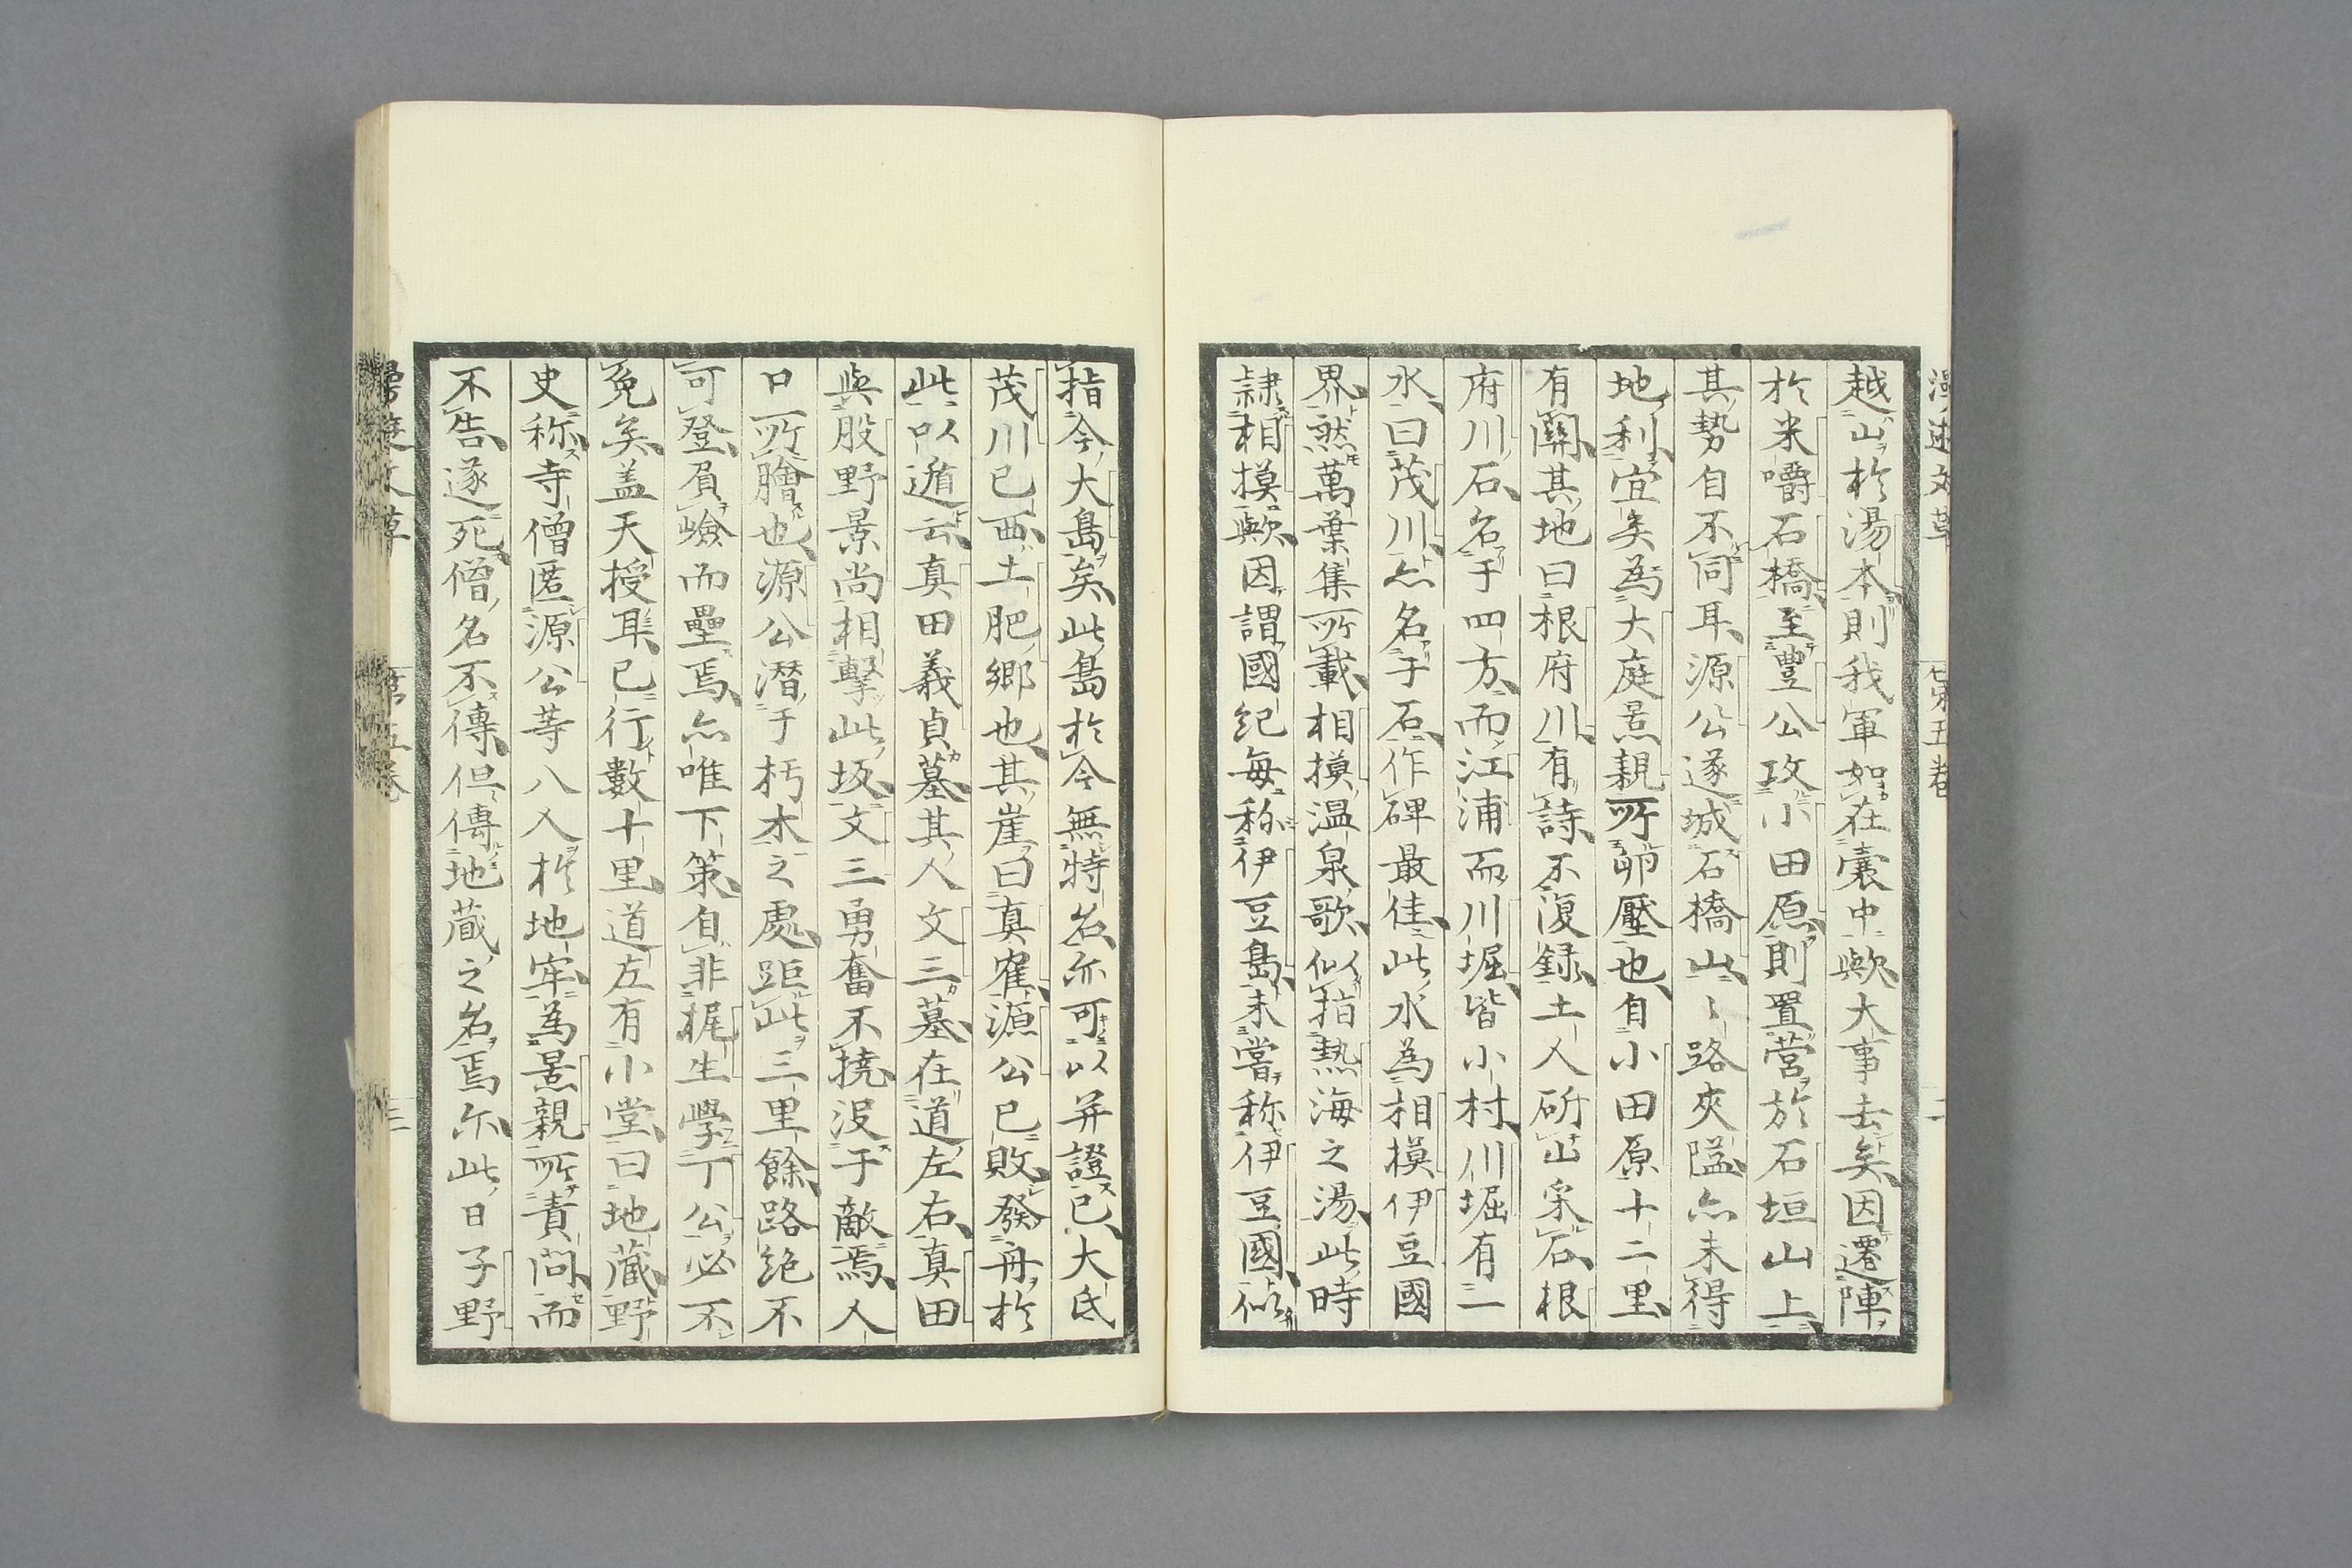 越山於湯本則我軍如在囊中歟大事去矣因遷陣
於米嚼石橋至豊公攻小田原則置營於石垣山上
其勢自不同耳源公遂城石橋山〻路夾隘亦未得
地利宜矣為大庭景親所卵壓也自小田原十二里
有關其地曰根府川有詩不復録土人斫出采石根
府川石名于四方而江浦而川堀皆小村川堀有二
水曰茂川亦名于石作碑最佳此水為相摸伊豆國
界然萬葉集所載相摸温泉歌似以指熱海之湯此時
隷相摸歟因謂國紀毎称伊豆島未嘗称伊豆國似
指今大島矣此島於今無特名亦可以并證已大氐
茂川已西土肥郷也其崖曰真寉源公已敗發舟於
此以遁云真田義貞墓其人文三墓在道左右真田
與股野景尚相擊此坂文三勇奮不撓没于敵焉人
口所膾也源公潜于朽木之處距此三里餘路絶不
可登負嶮而壘焉亦唯下策自非梶生學丁公必不
免矣盖天授耳已行數十里道左有小堂曰地蔵野
史称寺僧匿源公等八人於地牢為景親所責問而
不告遂死僧名不傳但傳地蔵之名焉尓此日子野
第五巻
文草 第五巻 三